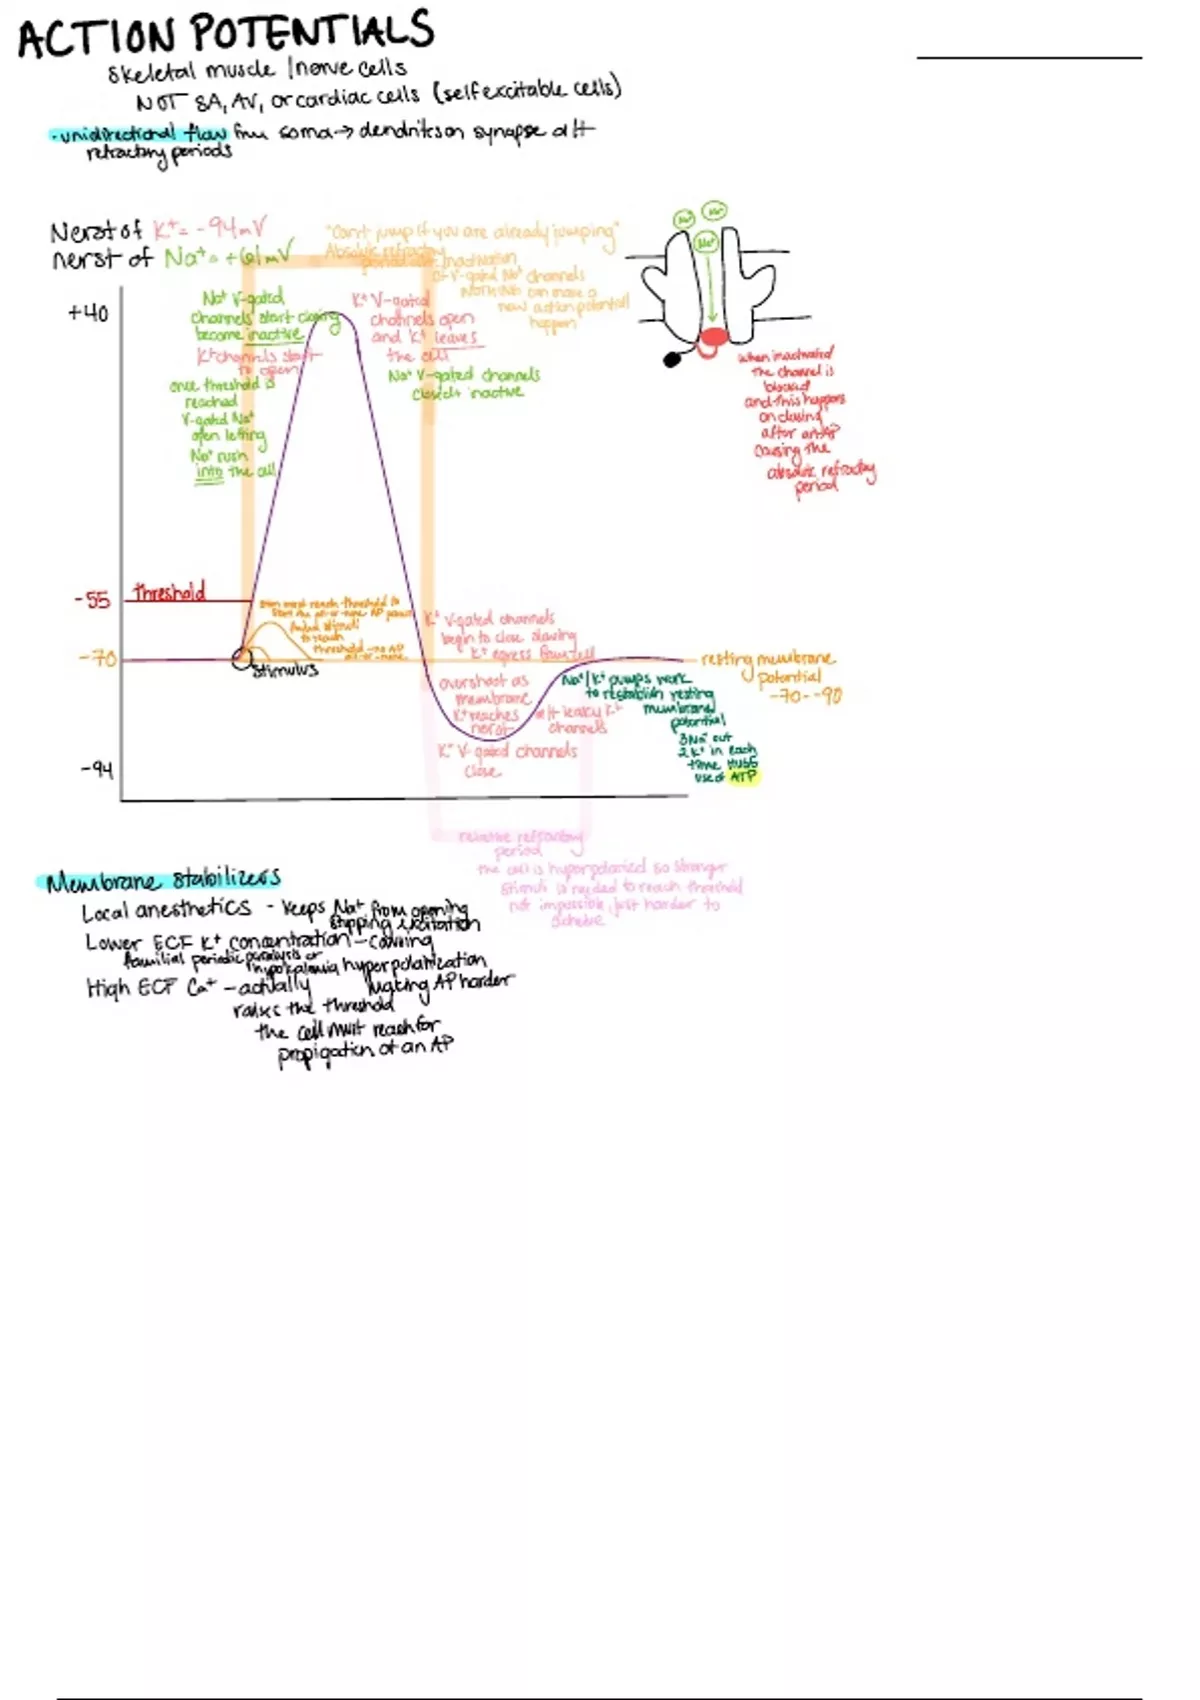 ACTION POTENTIALS
skeletal muscle / nerve cells
NOT SA, AV, or cardiac cells (self excitable cells)
- unidirectional flow soma → on synapse
refractory periods
Nerst of K+ = -94mV
nerst of Na+ = +61mV
"Can't jump if you are already jumping"
Absolute refractory
period inactivation
of V-gated Na+ channels
can make a
new action potential
happen
+40
Na+ V-gated
channels start closing
become inactive
K+ channels start
to open
once threshold is
reached
V-gated Na+
open letting
Na+ rush
into the cell
K+ V-gated
channels open
and K+ leaves
the cell
Na+ V-gated channels
closed + inactive
Na+ Na+
Na+
when inactivated
the channel is
blocked
and this happens
on closing
after an AP
causing the
absolute refractory
period
-55
threshold
must reach threshold to
start the all-or-none AP
failed stimuli
to reach
threshold - no AP
all-or-none
-70
stimulus
K+ V-gated channels
begin to close slowing
K+ egress from cell
resting membrane
potential
-70--90
overshoot as
membrane
K+ reaches
nerst
leaky K+
channels
K+ V-gated channels
close
Na+/K+ pumps work
to restablish resting
membrane
potential
3Na+ out
2K+ in each
time
use of ATP
-94
relative refractory
period
the cell is hyperpolarized so stronger
stimuli is needed to reach threshold
not impossible, just harder to
acheive
Membrane stabilizers
Local anesthetics - keeps Na+ from opening
stopping excitation
Lower ECF K+ concentration - causing
familial periodic paralysis or
hypokalemia hyperpolarization
making AP harder
High ECF Ca+ - actually
raises the threshold
the cell must reach for
propigation of an AP